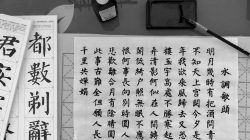 水調歌頭
明月幾時有把酒問青天
不知天上宮闕今夕是何
年我欲乘風歸去又恐瓊
樓玉宇高處不勝寒起舞
弄清影何似在人間轉朱
閣低綺戶照無眠不應有
恨何事長向別時圓人有
悲歡離合月有陰晴圓缺
此事古難全但願人長久
千里共嬋娟
都數剃辭
君安